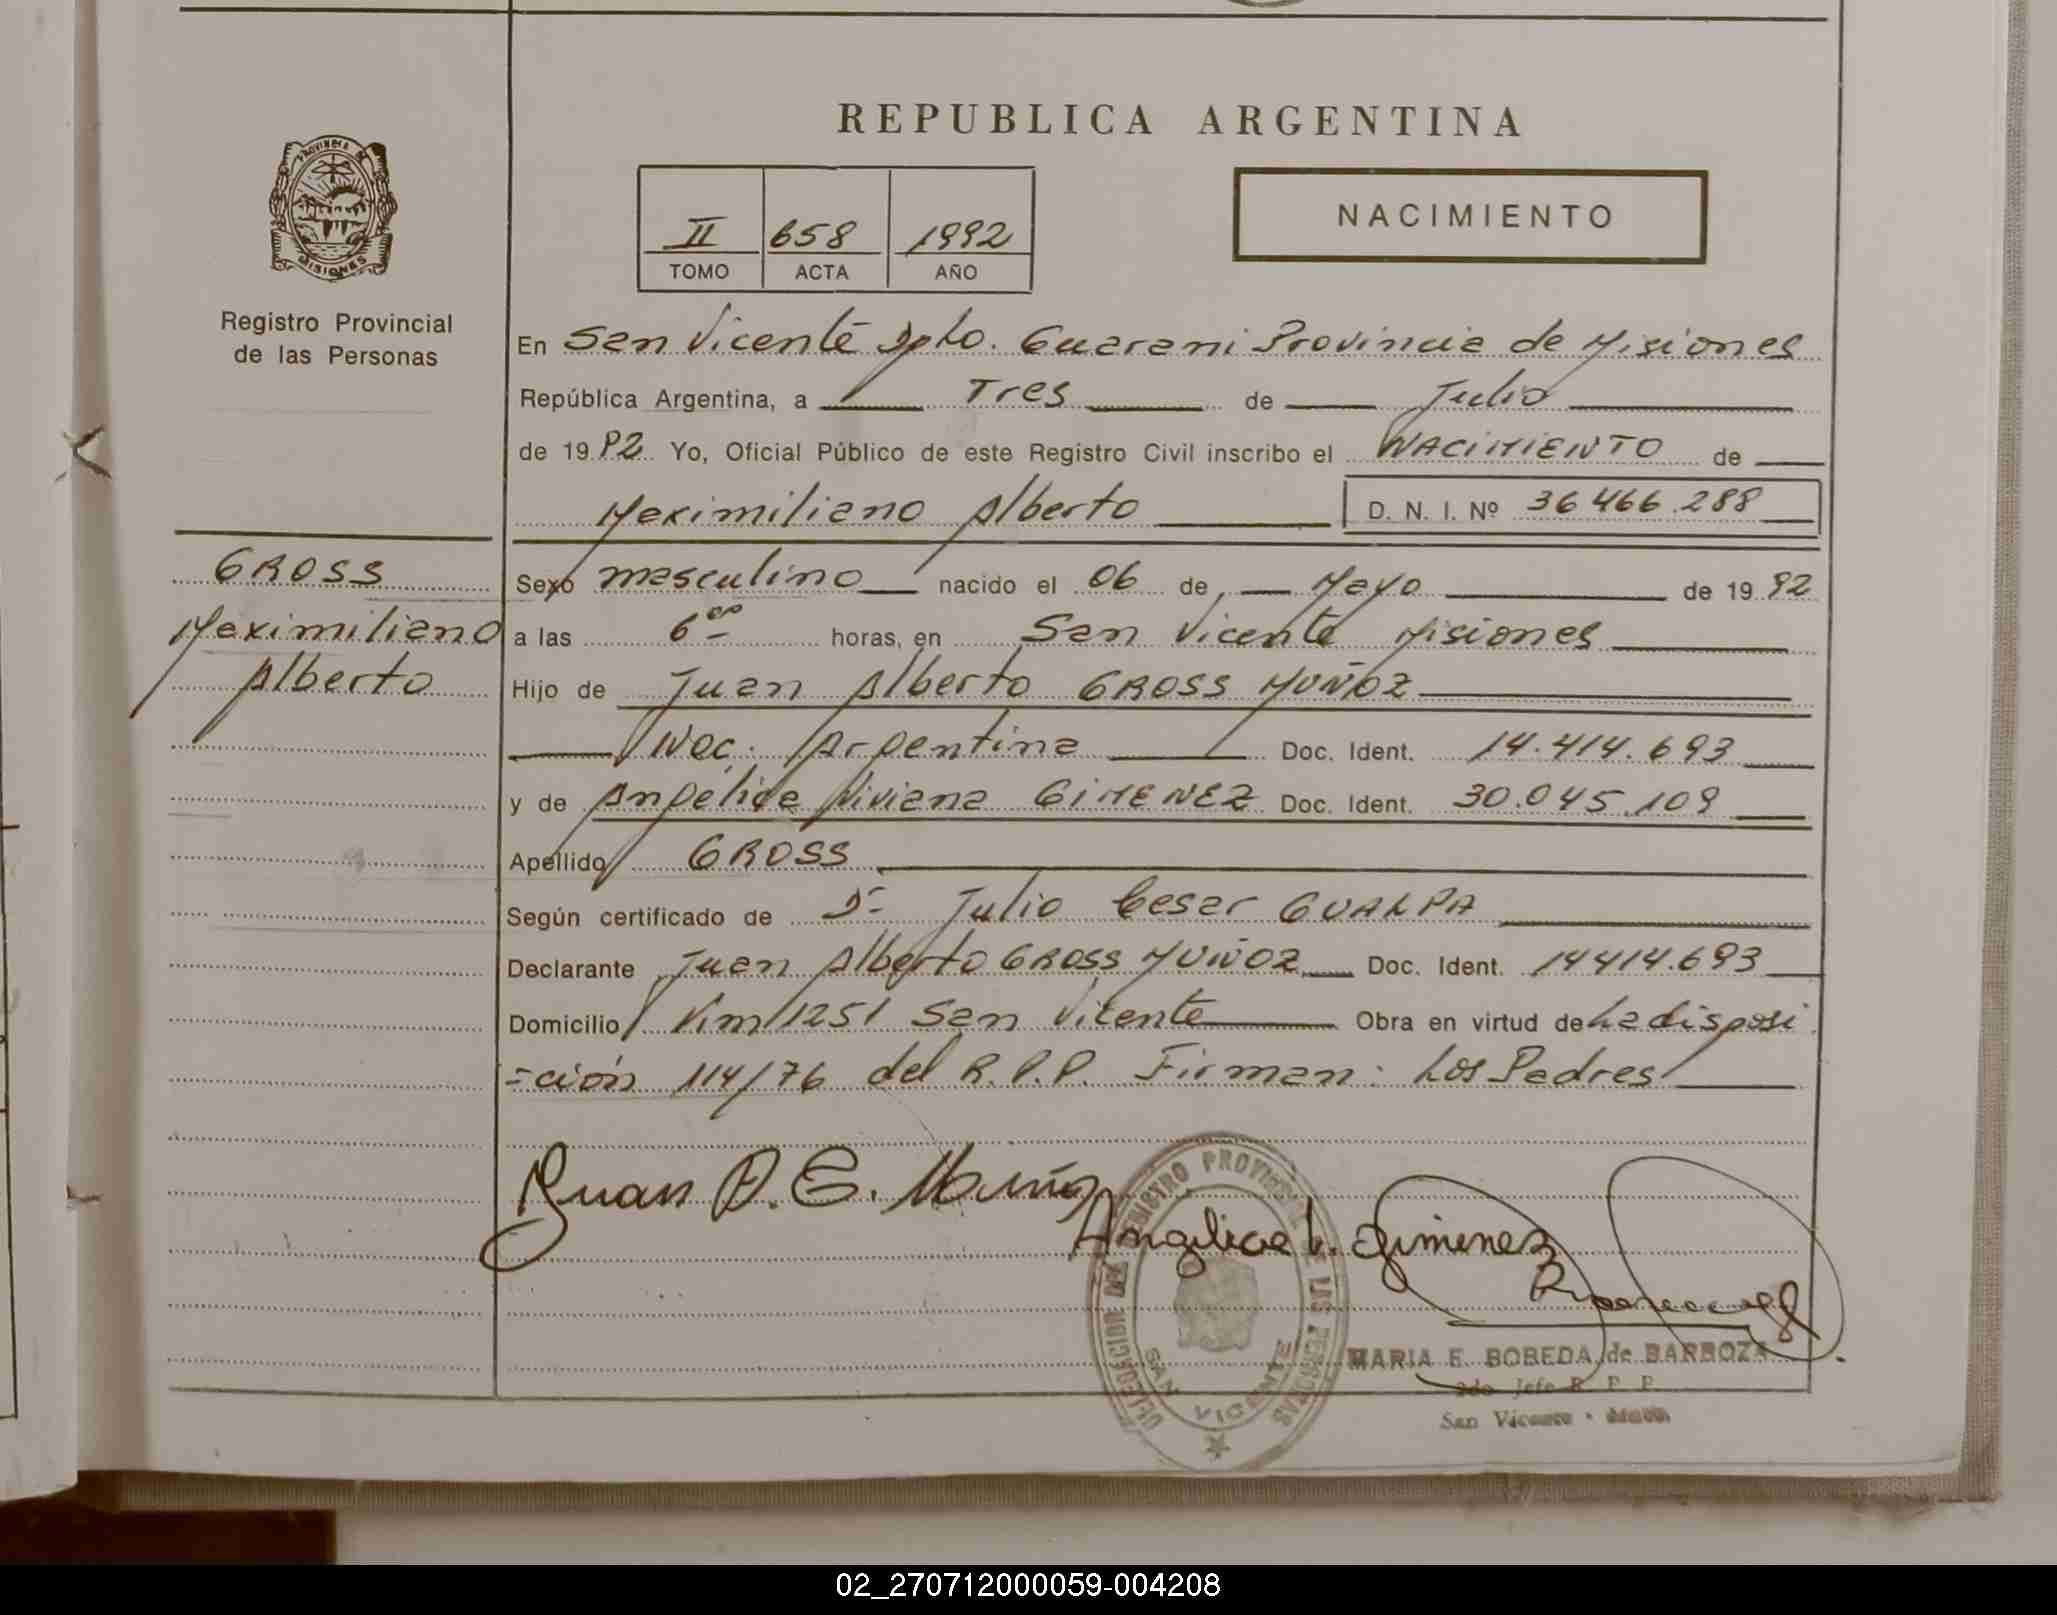 REPUBLICA ARGENTINA
PROVINCIA DE
MISIONES
Registro Provincial
de las Personas
II 658 1992
TOMO ACTA AÑO
NACIMIENTO
En San Vicente Dpto. Guarani Provincia de Misiones
República Argentina, a Tres de Julio
de 1992 Yo, Oficial Público de este Registro Civil inscribo el NACIMIENTO de
Maximiliano Alberto D. N. I. Nº 36 466.288
GROSS
Maximiliano
Alberto
Sexo masculino nacido el 06 de Mayo de 1992
a las 6 00 horas, en San Vicente Misiones
Hijo de Juan Alberto GROSS MUÑOZ
Nac. Argentina Doc. Ident. 14.414.693
y de Angélica Viviana GIMENEZ Doc. Ident. 30.045.109
Apellido GROSS
Según certificado de Dr Julio Cesar GUALPA
Declarante Juan Alberto GROSS MUÑOZ Doc. Ident. 14414.693
Domicilio Km 1251 San Vicente Obra en virtud de La disposi
=ción 114/76 del R.P.P. Firman: Los Padres
Juan A. G. Muñoz
Angelica V. Gimenez
DELEGACION DEL REGISTRO PROVINCIAL DE LAS PERSONAS
SAN VICENTE
MARIA E. BOBEDA de BARBOZA
2do Jefe R. P. P.
San Vicente - Mnes.
02_270712000059-004208